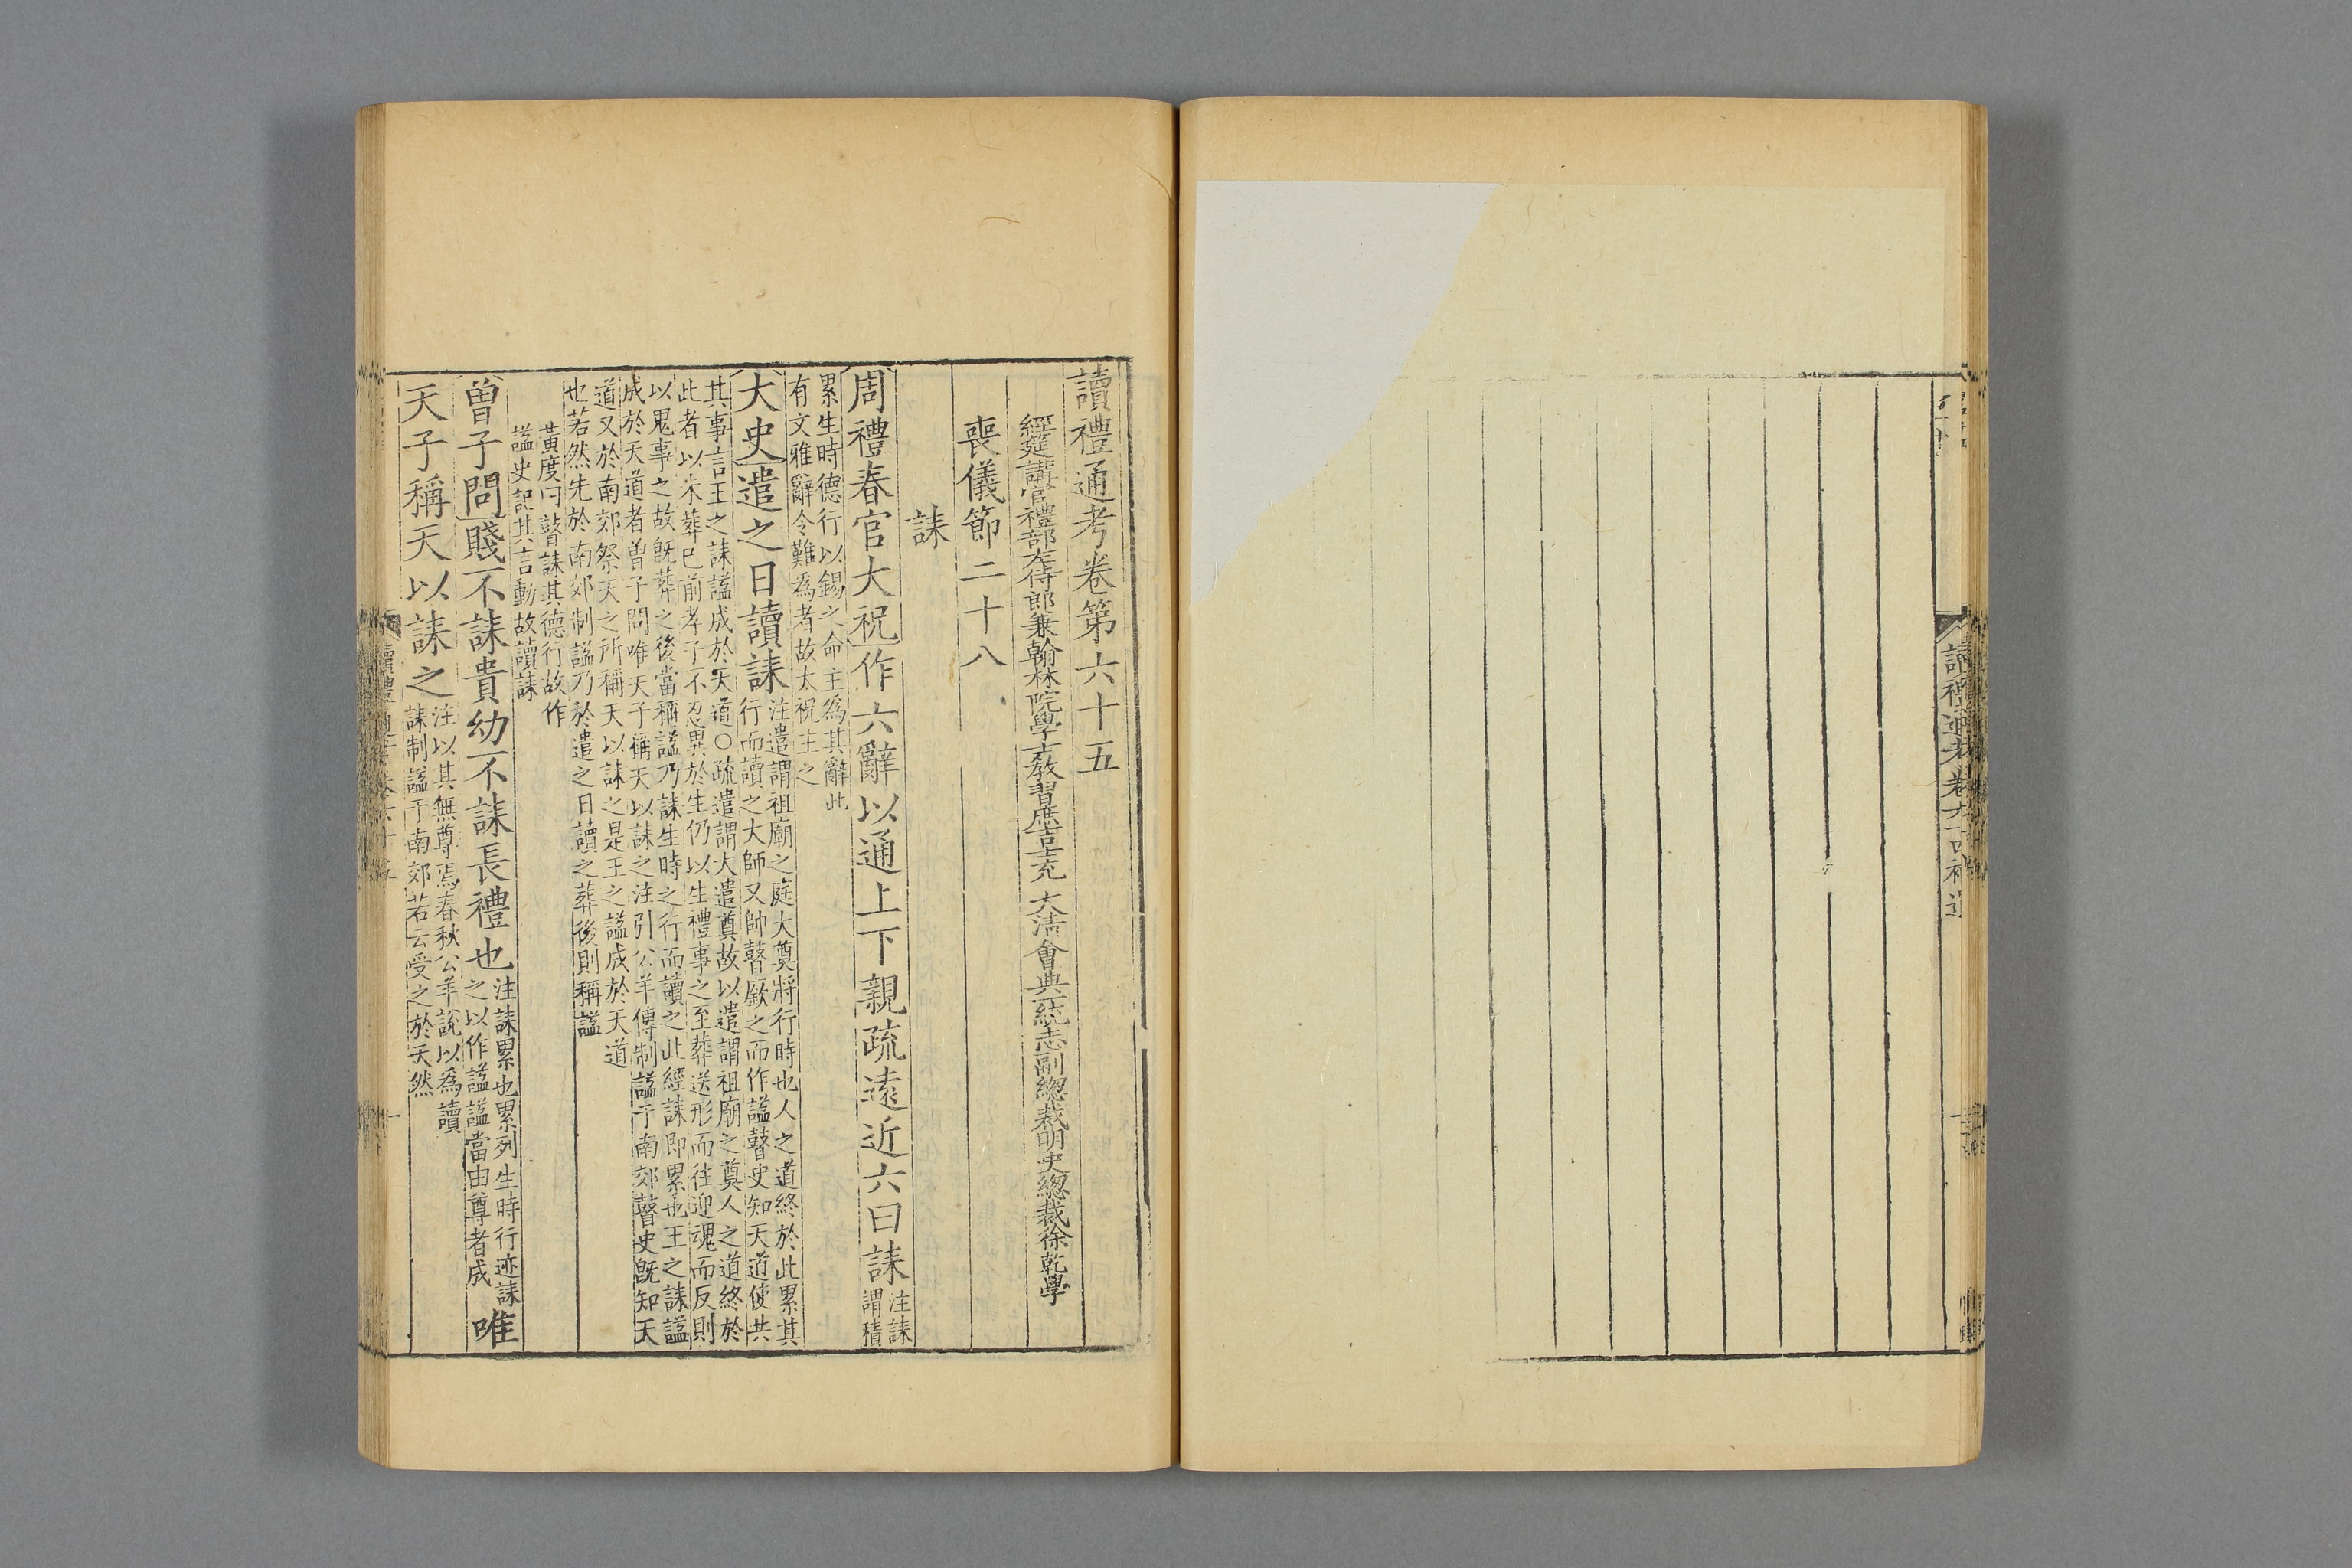 讀禮通考卷
讀禮通考卷第六十五
經筵講官禮部左侍郎兼翰林院學士教習庶吉士充 大清會典一統志副總裁明史總裁徐乾學
喪儀節二十八
誄
周禮春官大祝作六辭以通上下親疏遠近六曰誄注誄
謂積
累生時德行以錫之命主為其辭此
有文雅辭令難為者故太祝主之
大史遣之日讀誄注遣謂祖廟之庭大奠將行時也人之道終於此累其
行而讀之大師又帥瞽廞之而作謚瞽史知天道使共
其事言王之誄謚成於天道〇疏遣謂大遣奠故以遣謂祖廟之奠人之道終於
此者以未葬已前孝子不忍異於生仍以生禮事之至葬送形而往迎魂而反則
以鬼事之故旣葬之後當稱謚乃誄生時之行而讀之此經誄即累也王之誄謚
成於天道者曾子問唯天子稱天以誄之注引公羊傳制謚于南郊瞽史旣知天
道又於南郊祭天之所稱天以誄之是王之謚成於天道
也若然先於南郊制謚乃於遣之日讀之葬後則稱謚
黃度曰瞽誄其德行故作
謚史記其言動故讀誄
曾子問賤不誄貴幼不誄長禮也注誄累也累列生時行迹誄
之以作謚謚當由尊者成
唯
天子稱天以誄之注以其無尊焉春秋公羊說以為讀
誄制謚于南郊若云受之於天然
讀禮通考卷六十五
一